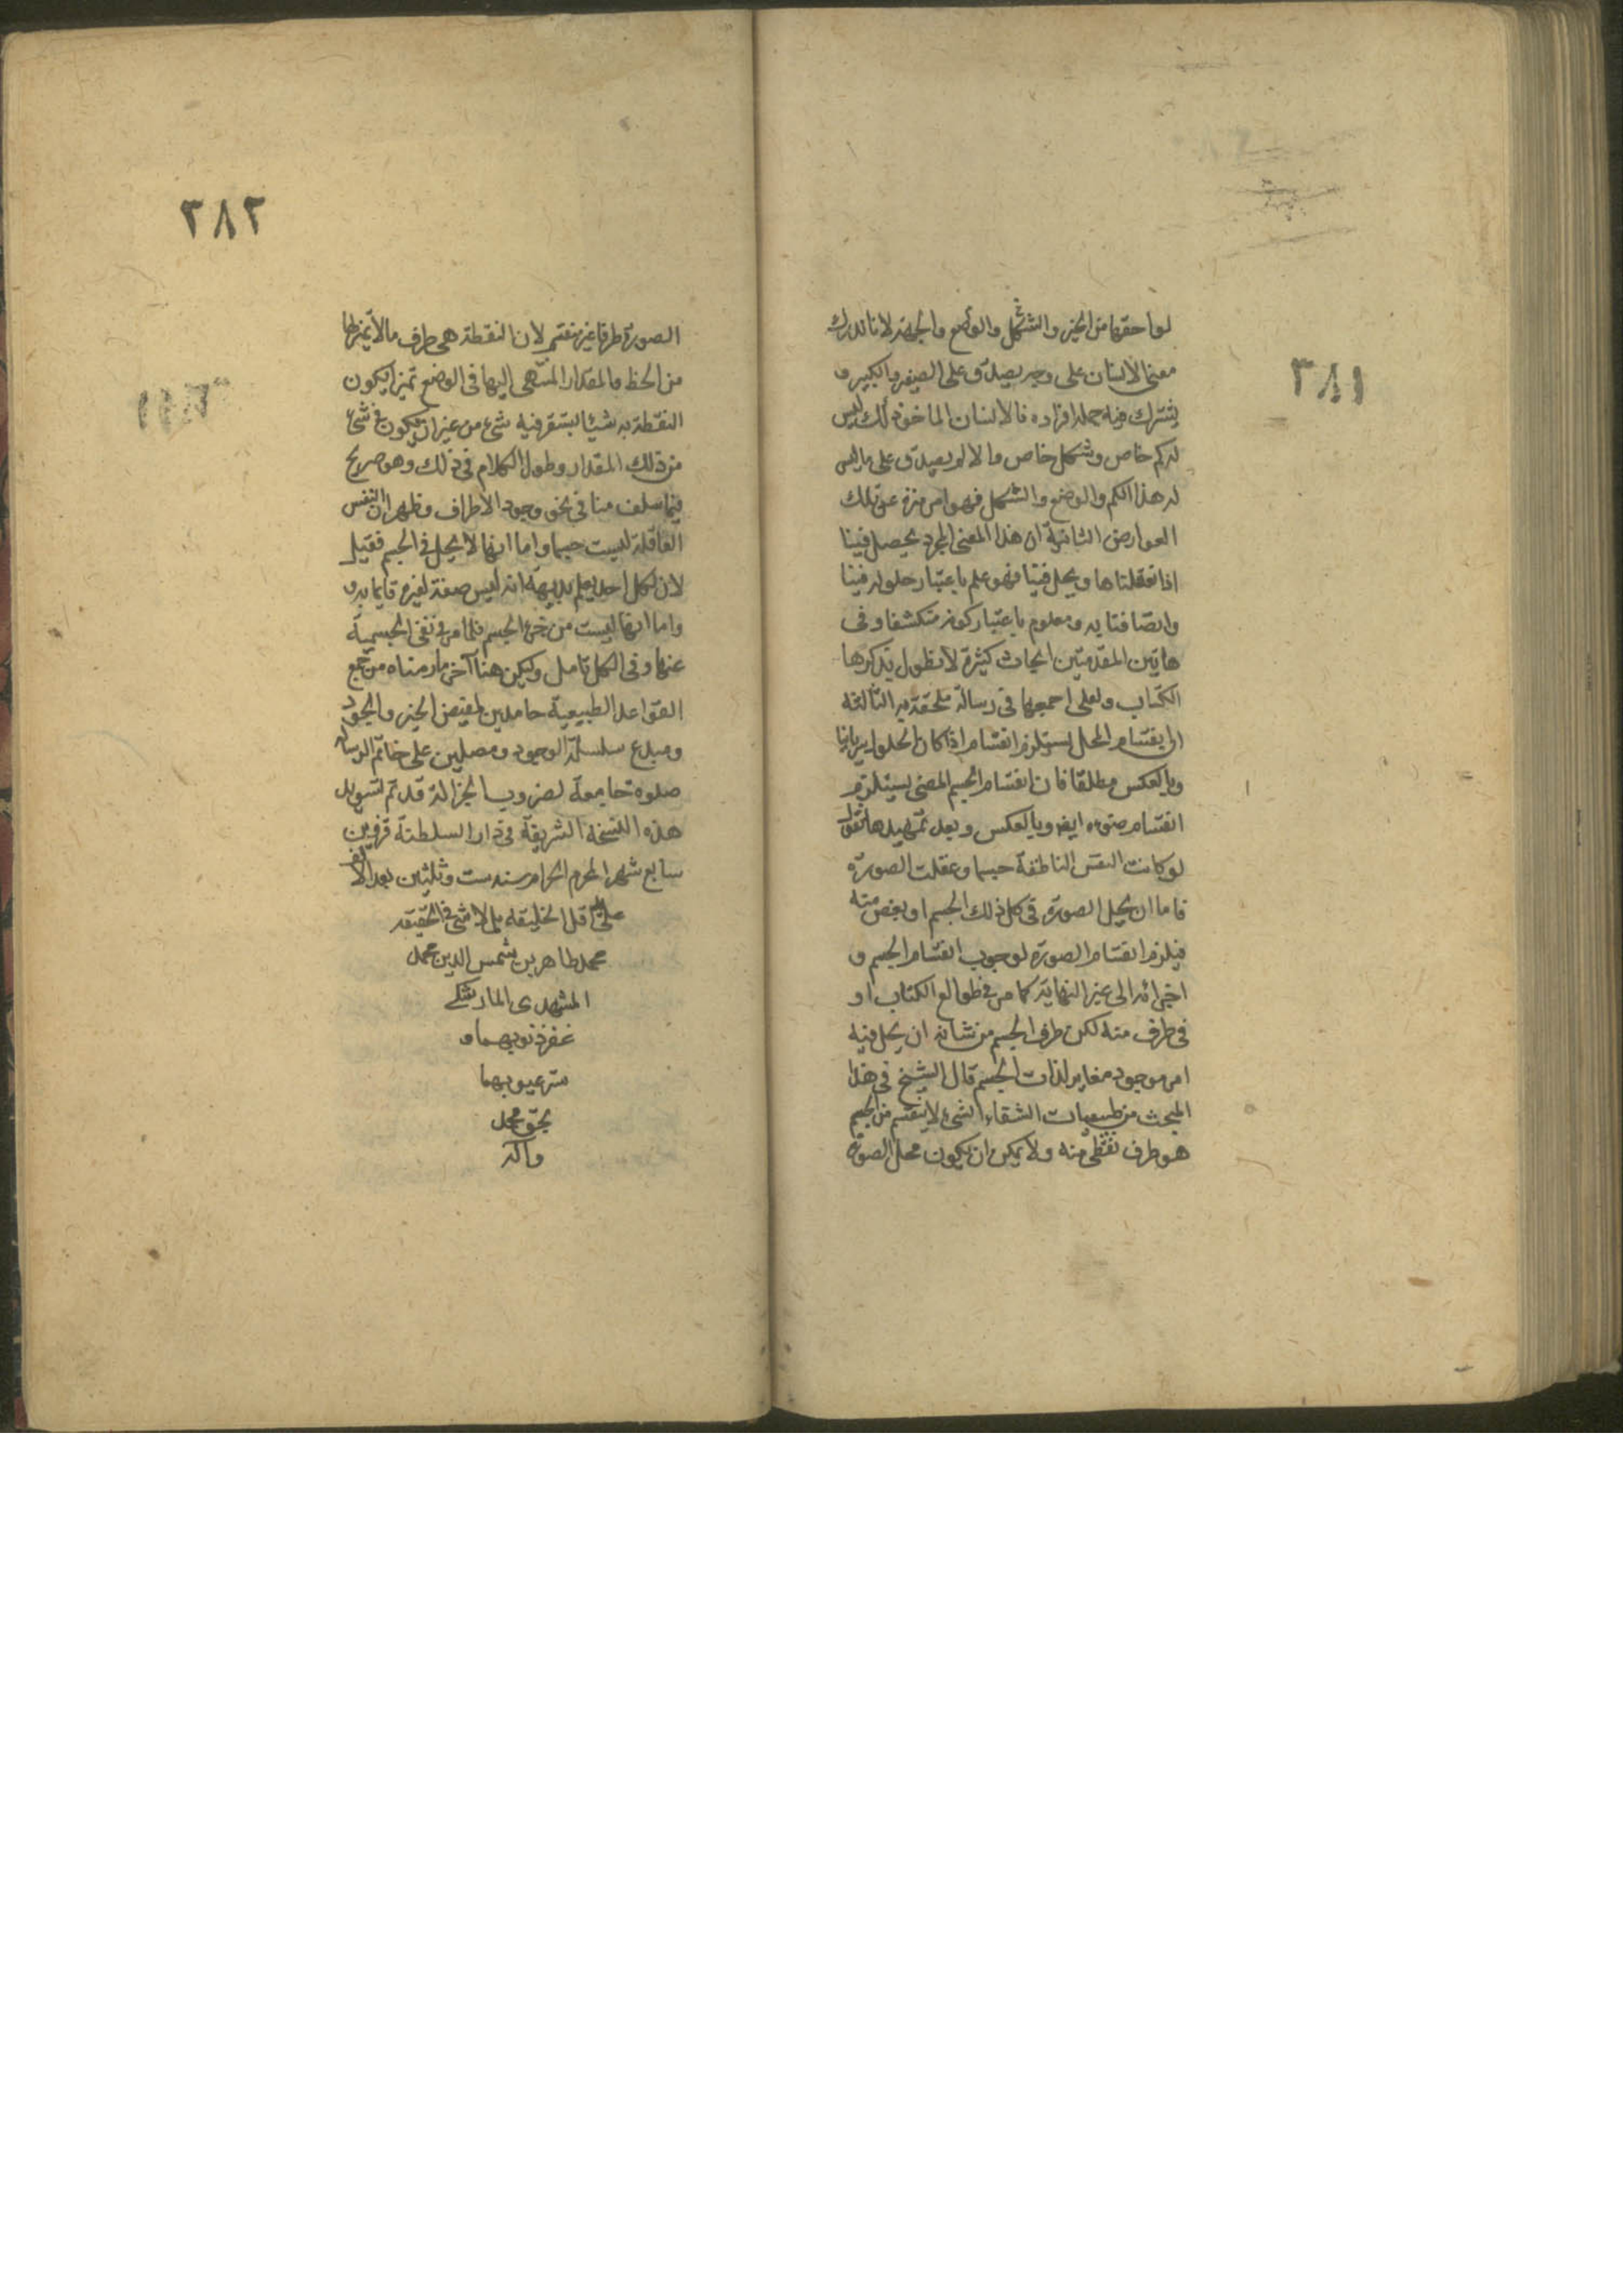 ٣٨١
لواحقها من الحيز والشكل والوضع والجهة لانا ندرك
معنى الانسان على وجه يصدق على الصغير والكبير و
يشترك فيه جملة افراده فالانسان الماخوذ كذلك ليس
له كم خاص وشكل خاص والا لم يصدق على ما ليس
له هذا الكم والوضع والشكل فهو امر منزه عن تلك
العوارض الثانية ان هذا المعنى المجرد يحصل فينا
اذا تعقلناها ويحل فينا فهو علم باعتبار حلوله فينا
واتصافنا به ومعلوم باعتبار كونه منكشفا وفى
هاتين المقدمتين ابحاث كثيرة لا نطول بذكرها
الكتاب ولعلى اجمعها فى رسالة ملحقة به الثالثة
ان انقسام المحل يستلزم انقسام اذا كان الحلول سريانيا
وبالعكس مطلقا فان انقسام الجسم المضى يستلزم
انقسام ضوءه ايضا وبالعكس وبعد تمهيدها نقول
لو كانت النفس الناطقة جسما وعقلت الصورة
فاما ان يحل الصورة فى كل ذلك الجسم او بعض منه
فيلزم انقسام الصورة لوجوب انقسام الجسم و
اجزائه الى غير النهاية كما مر فى طوالع الكتاب او
فى طرف منه لكن طرف الجسم من شانه ان يحل فيه
امر موجود مغاير لذات الجسم قال الشيخ فى هذا
المبحث من طبيعيات الشفاء الشىء لا ينقسم من الجسم
هو طرف نقطى منه ولا يمكن ان يكون محل الصورة
٣٨٢
الصورة طرفا غير منقسم لان النقطة هى طرف ما لا تميز لها
من الخط والمقدار المنتهى اليها فى الوضع تميزا يكون
النقطة به شيئا يستقر فيه شىء من غير ان يكون فى شىء
من ذلك المقدار وطول الكلام فى ذلك وهو صريح
فيما سلف منا فى نحو وجود الاطراف وظهر ان النفس
العاقلة ليست جسما واما انها لا يحل فى الجسم فقيل
لان لكل احد يعلم بديهة انه ليس صفة لغيره قايما به و
واما انها ليست من جزء الجسم فلما مر فى نفى الجسمية
عنها وفى الكل تامل وليكن هنا آخر ما رمناه من جمع
القواعد الطبيعية حامدين لمفيض الخير والجود
ومبدع سلسلة الوجود ومصلين على خاتم الرسالة
صلوة جامعة لضروب الجزالة قد تم تسويد
هذه النسخة الشريفة فى دار السلطنة قزوين
سابع شهر المحرم الحرام سنه ست وثلثين بعد الالف
على يد اقل الخليقه بل لا شى فى الحقيقه
محمد طاهر بن شمس الدين محمد
المشهدى
غفر ذنوبهما و
ستر عيوبهما
بحق محمد
وآله